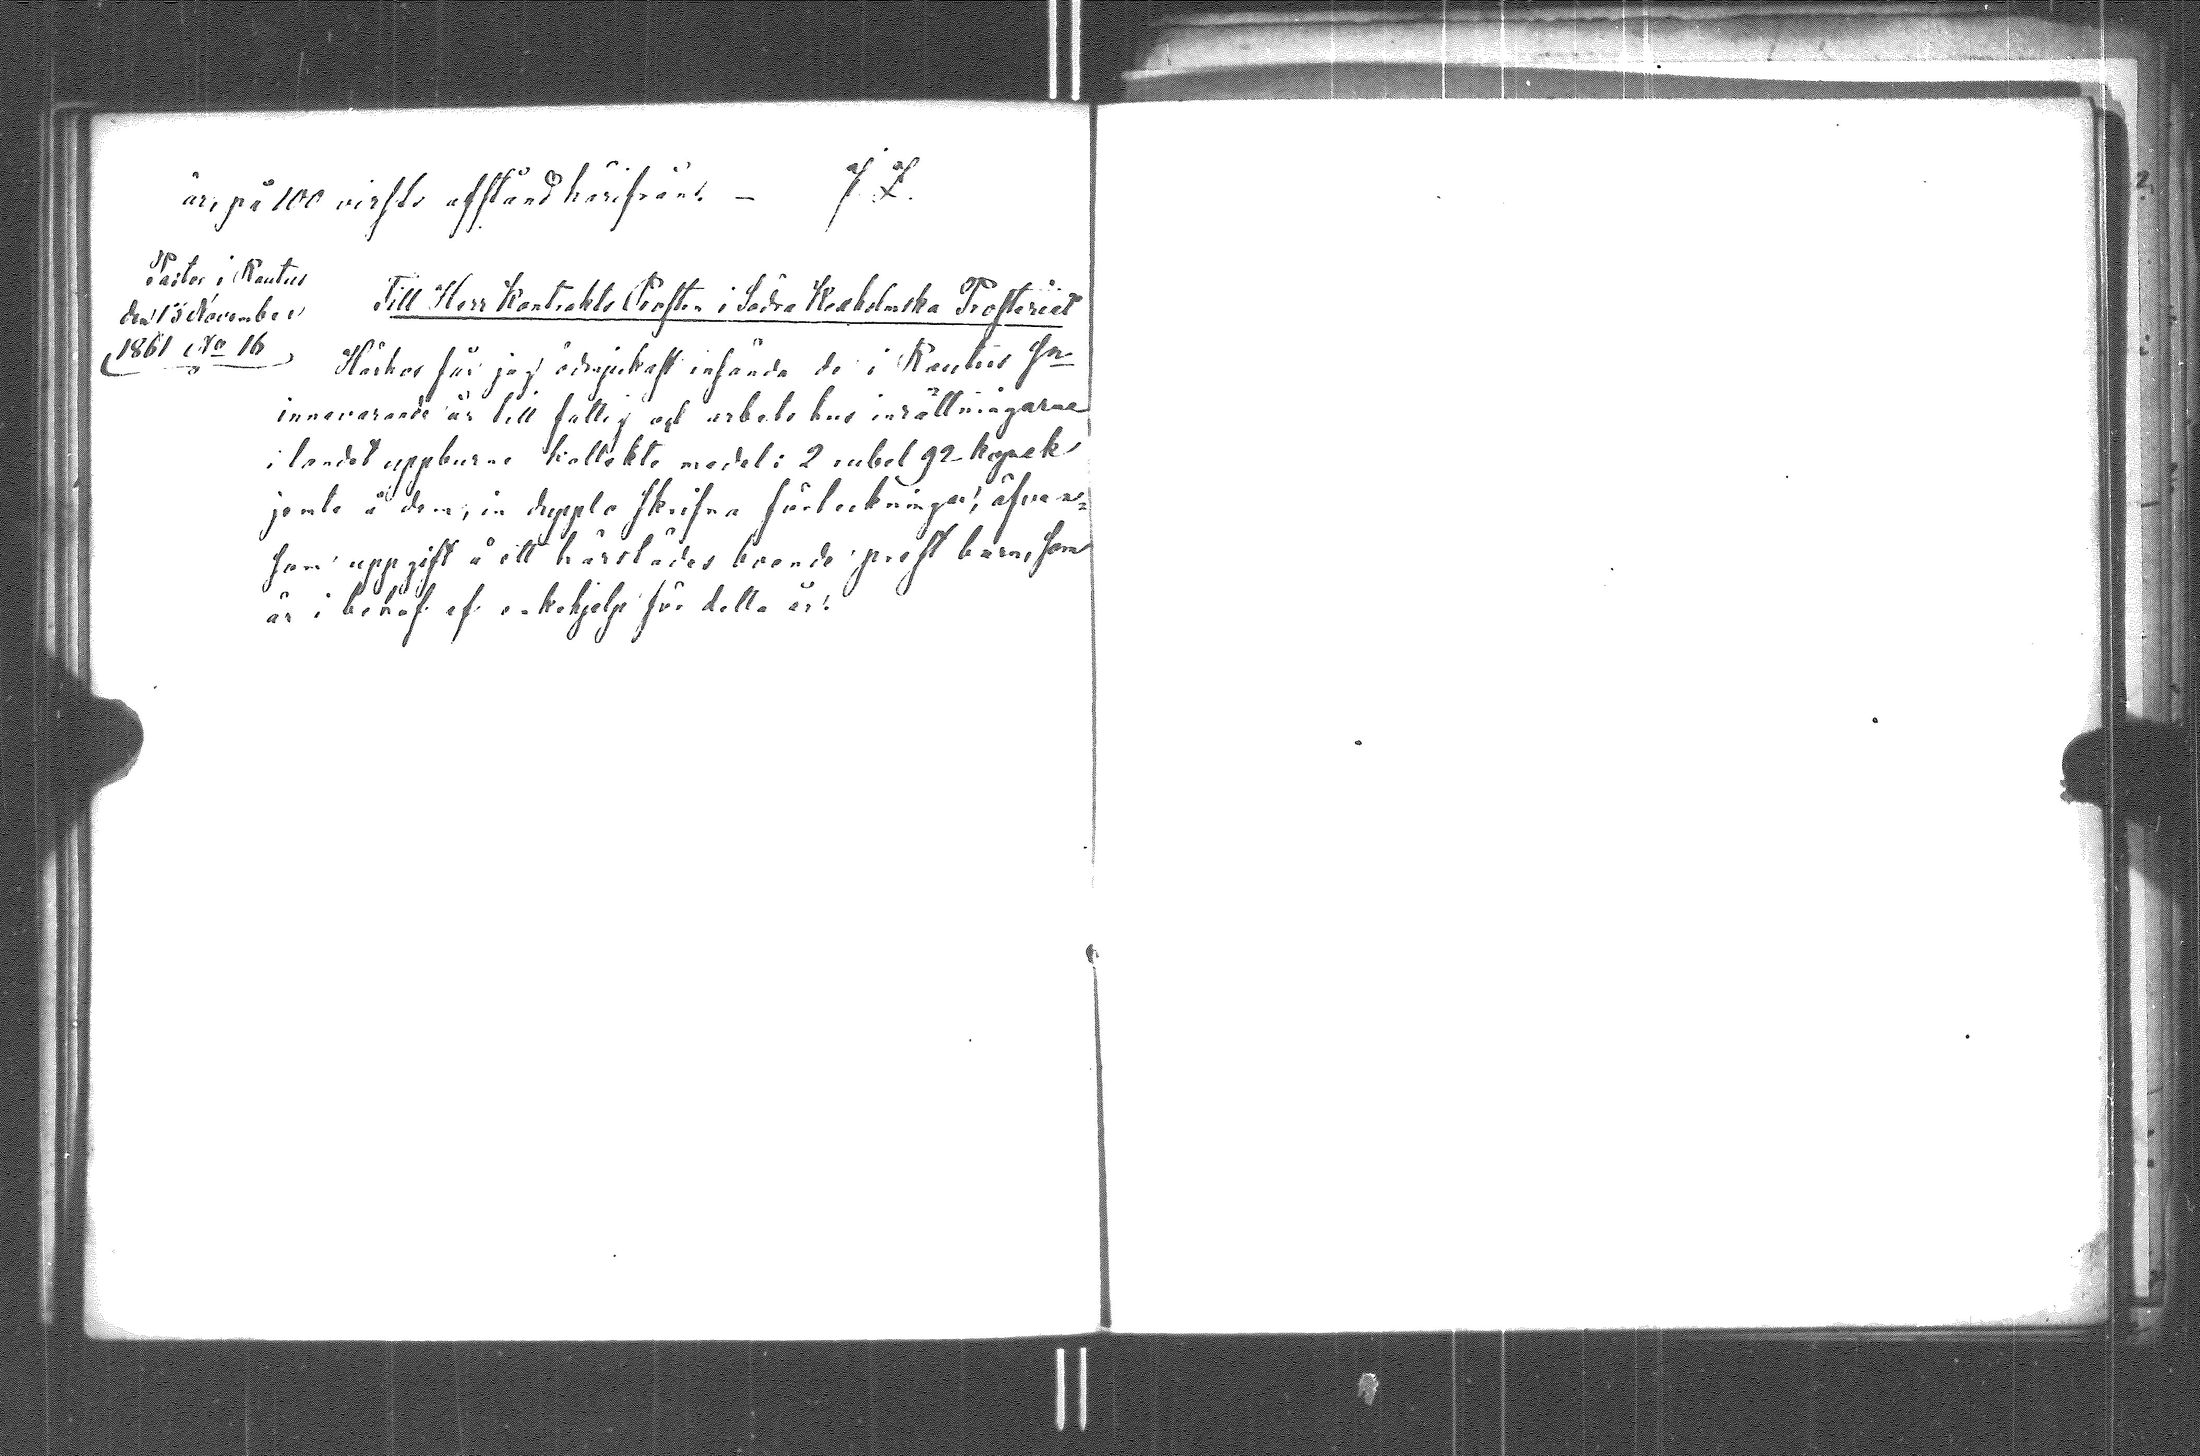 är, på 100 virsts afstånd härifrån. –
J. Z.
Pastor i Rautus
den 13 November
1861 No 16
Till Herr Kontrakts Prosten i Södra Kexholmska Prosteriet
Härhos får jag ödmjukast insända de i Rautus Sn
innevarande år till fattig och arbets hus inrättningarne
i landet uppburne kollekte medel: 2 rubel 92 kopek
jemte å dem, in dupplo skrifna förteckningar, äfven-
som uppgift å ett härstädes boende prest barn, som
är i behof af enkehjelp för detta år.